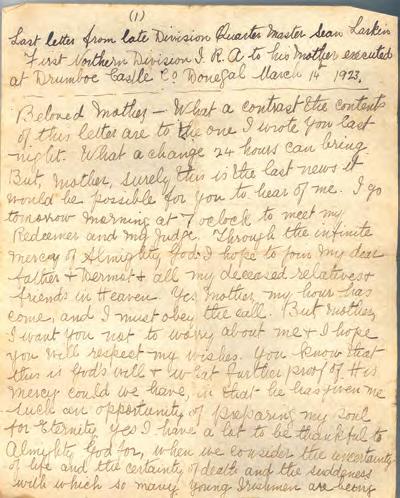 (1)
Last letter from late Division Quarter Master Sean Larkin
First Northern Division I.R.A to his Mother executed
at Drumboe Castle Co Donegal March 14 1923.
Beloved Mother – What a contrast the contents
of this letter are to the one I wrote you last
night. What a change 24 hours can bring.
But, Mother, surely this is the last news it
would be possible for you to hear of me. I go
tomorrow morning at 7 oclock to meet my
Redeemer and my Judge. Through the infinite
mercy of Almighty God I hope to join my dear
father + Dermot + all my deceased relatives +
friends in Heaven. Yes Mother my hour has
come, and I must obey the call. But Mother,
I want you not to worry about me + I hope
you will respect my wishes. You know that
this is God's will + what further proof of His
mercy could we have, in that he has given me
such an opportunity of preparing my soul
for Eternity. Yes I have a lot to be thankful to
Almighty God for, when we consider the uncertainty
of life and the certainty of death and the suddeness
with which so many young Irishmen are being